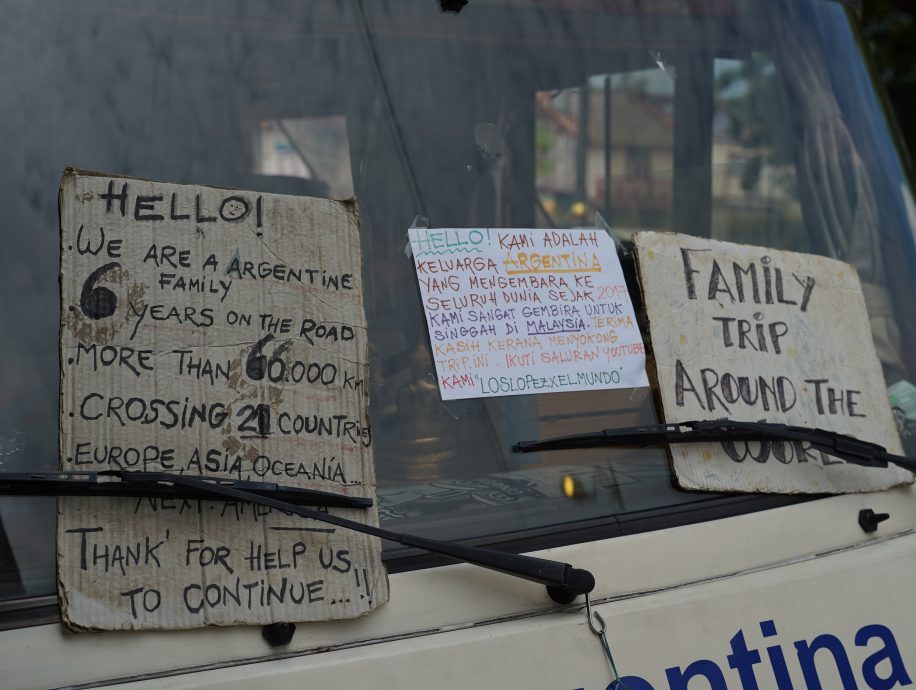 HELLO!
.WE ARE A ARGENTINE
FAMILY
6 YEARS ON THE ROAD
.MORE THAN 66.000 KM
.CROSSING 21 COUNTRIES
.EUROPE, ASIA, OCEANÍA...
NEXT: AMERICA
THANK' FOR HELP US
TO CONTINUE...!!
HELLO! KAMI ADALAH
KELUARGA ARGENTINA
YANG MENGEMBARA KE
SELURUH DUNIA SEJAK 2017
KAMI SANGAT GEMBIRA UNTUK
SINGGAH DI MALAYSIA. TERIMA
KASIH KERANA MENYOKONG
TRIP INI. IKUTI SALURAN YOUTUBE
KAMI "LOSLOPEZXELMUNDO"
FAMILY
TRIP
AROUND THE
WORLD
entina